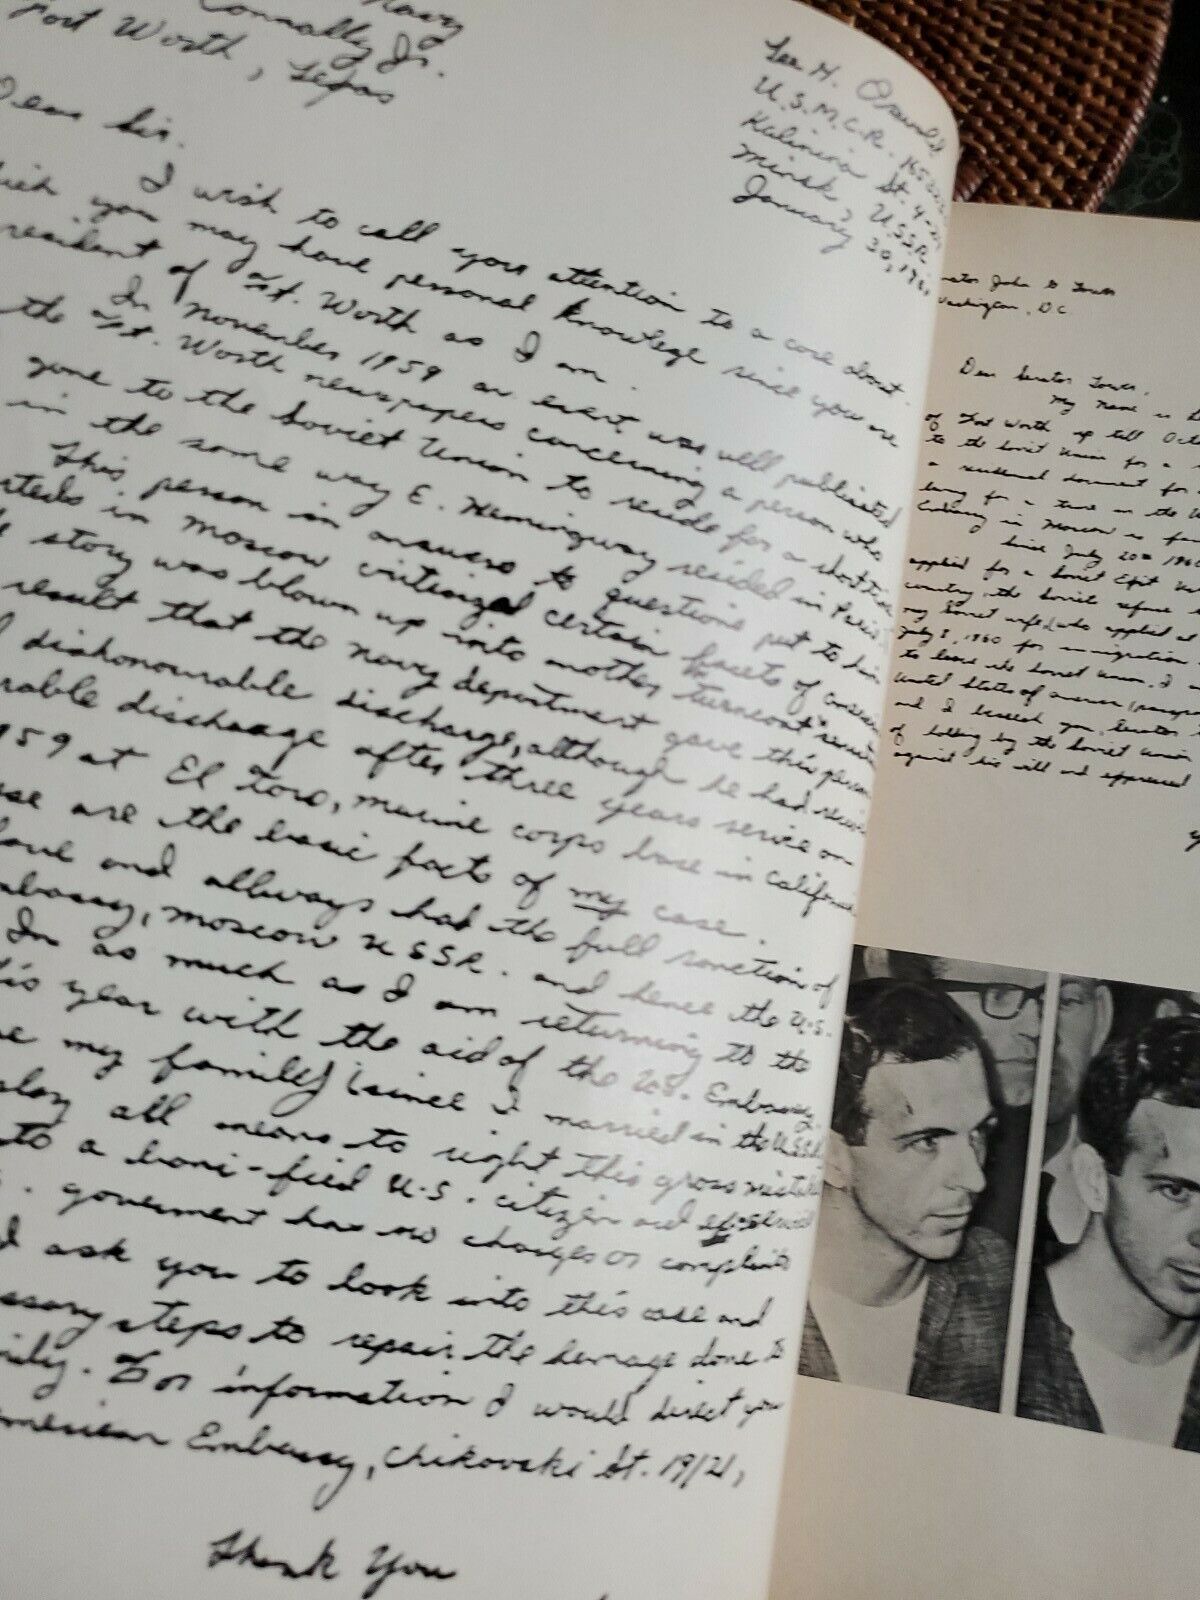 Navy
Connally Jr.
Fort Worth, Texas
Lee H. Oswald
U.S.M.C.R.
Kalinina St. 4-
Minsk, USSR
January 30, 19
Dear Sir.
I wish to call your attention to a case about
you may have personal knowlege since you are
resident of Ft. Worth as I am.
In November 1959 an event was well publicated
the Ft. Worth newspapers concerning a person who
gone to the Soviet Union to reside for a short time
in the same way E. Hemingway resided in Paris.
This person in answers to questions put to him
in Moscow criticized certain facets of
story was blown up into another "turncoat"
result that the navy department gave this person
dishonourable discharge, although he had
discharge after three years service on
59 at El Toro, marine corps base in California.
are the basic facts of my case.
and allways had the full sanction of
mbassy, Moscow USSR. and hence the U.S.
In as much as I am returning to the
year with the aid of the U.S. Embassy.
my family (since I married in the USSR)
all means to right this gross mistake
to a boni-fied U.S. citizen and
government has no charges or complaints
ask you to look into this case and
steps to repair the damage done to
For information I would direct you
American Embassy, Chikovski St. 19/21,
Thank You
ator John G Tower
Washington, D.C.
Dear Senator Tower,
My name is
of Fort Worth up till
to the Soviet Union for a
a residenal document for
for a time in the
Embassy in Moscow is
Since July 20th 1960
applied for a Soviet Exit
country, the Soviets refuse
my Soviet wife, who applied
July 8, 1960 for immigration
to leave the Soviet Union. I
United States of America
and I beseech you, Senator
of holding by the Soviet Union
against his will and expressed